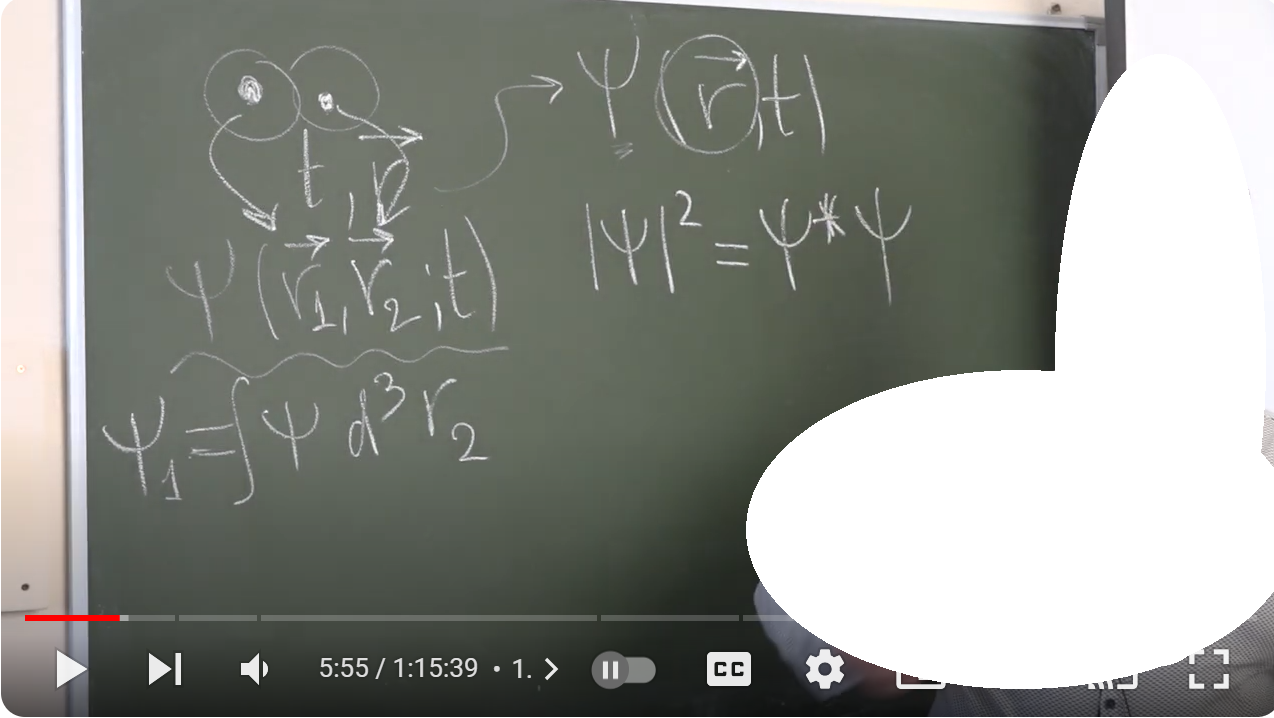 t, r⃗
ψ(r⃗₁, r⃗₂, t)
ψ₁ = ∫ ψ d³r₂
ψ(r⃗, t)
|ψ|² = ψ*ψ
5:55 / 1:15:39 • 1. >
CC